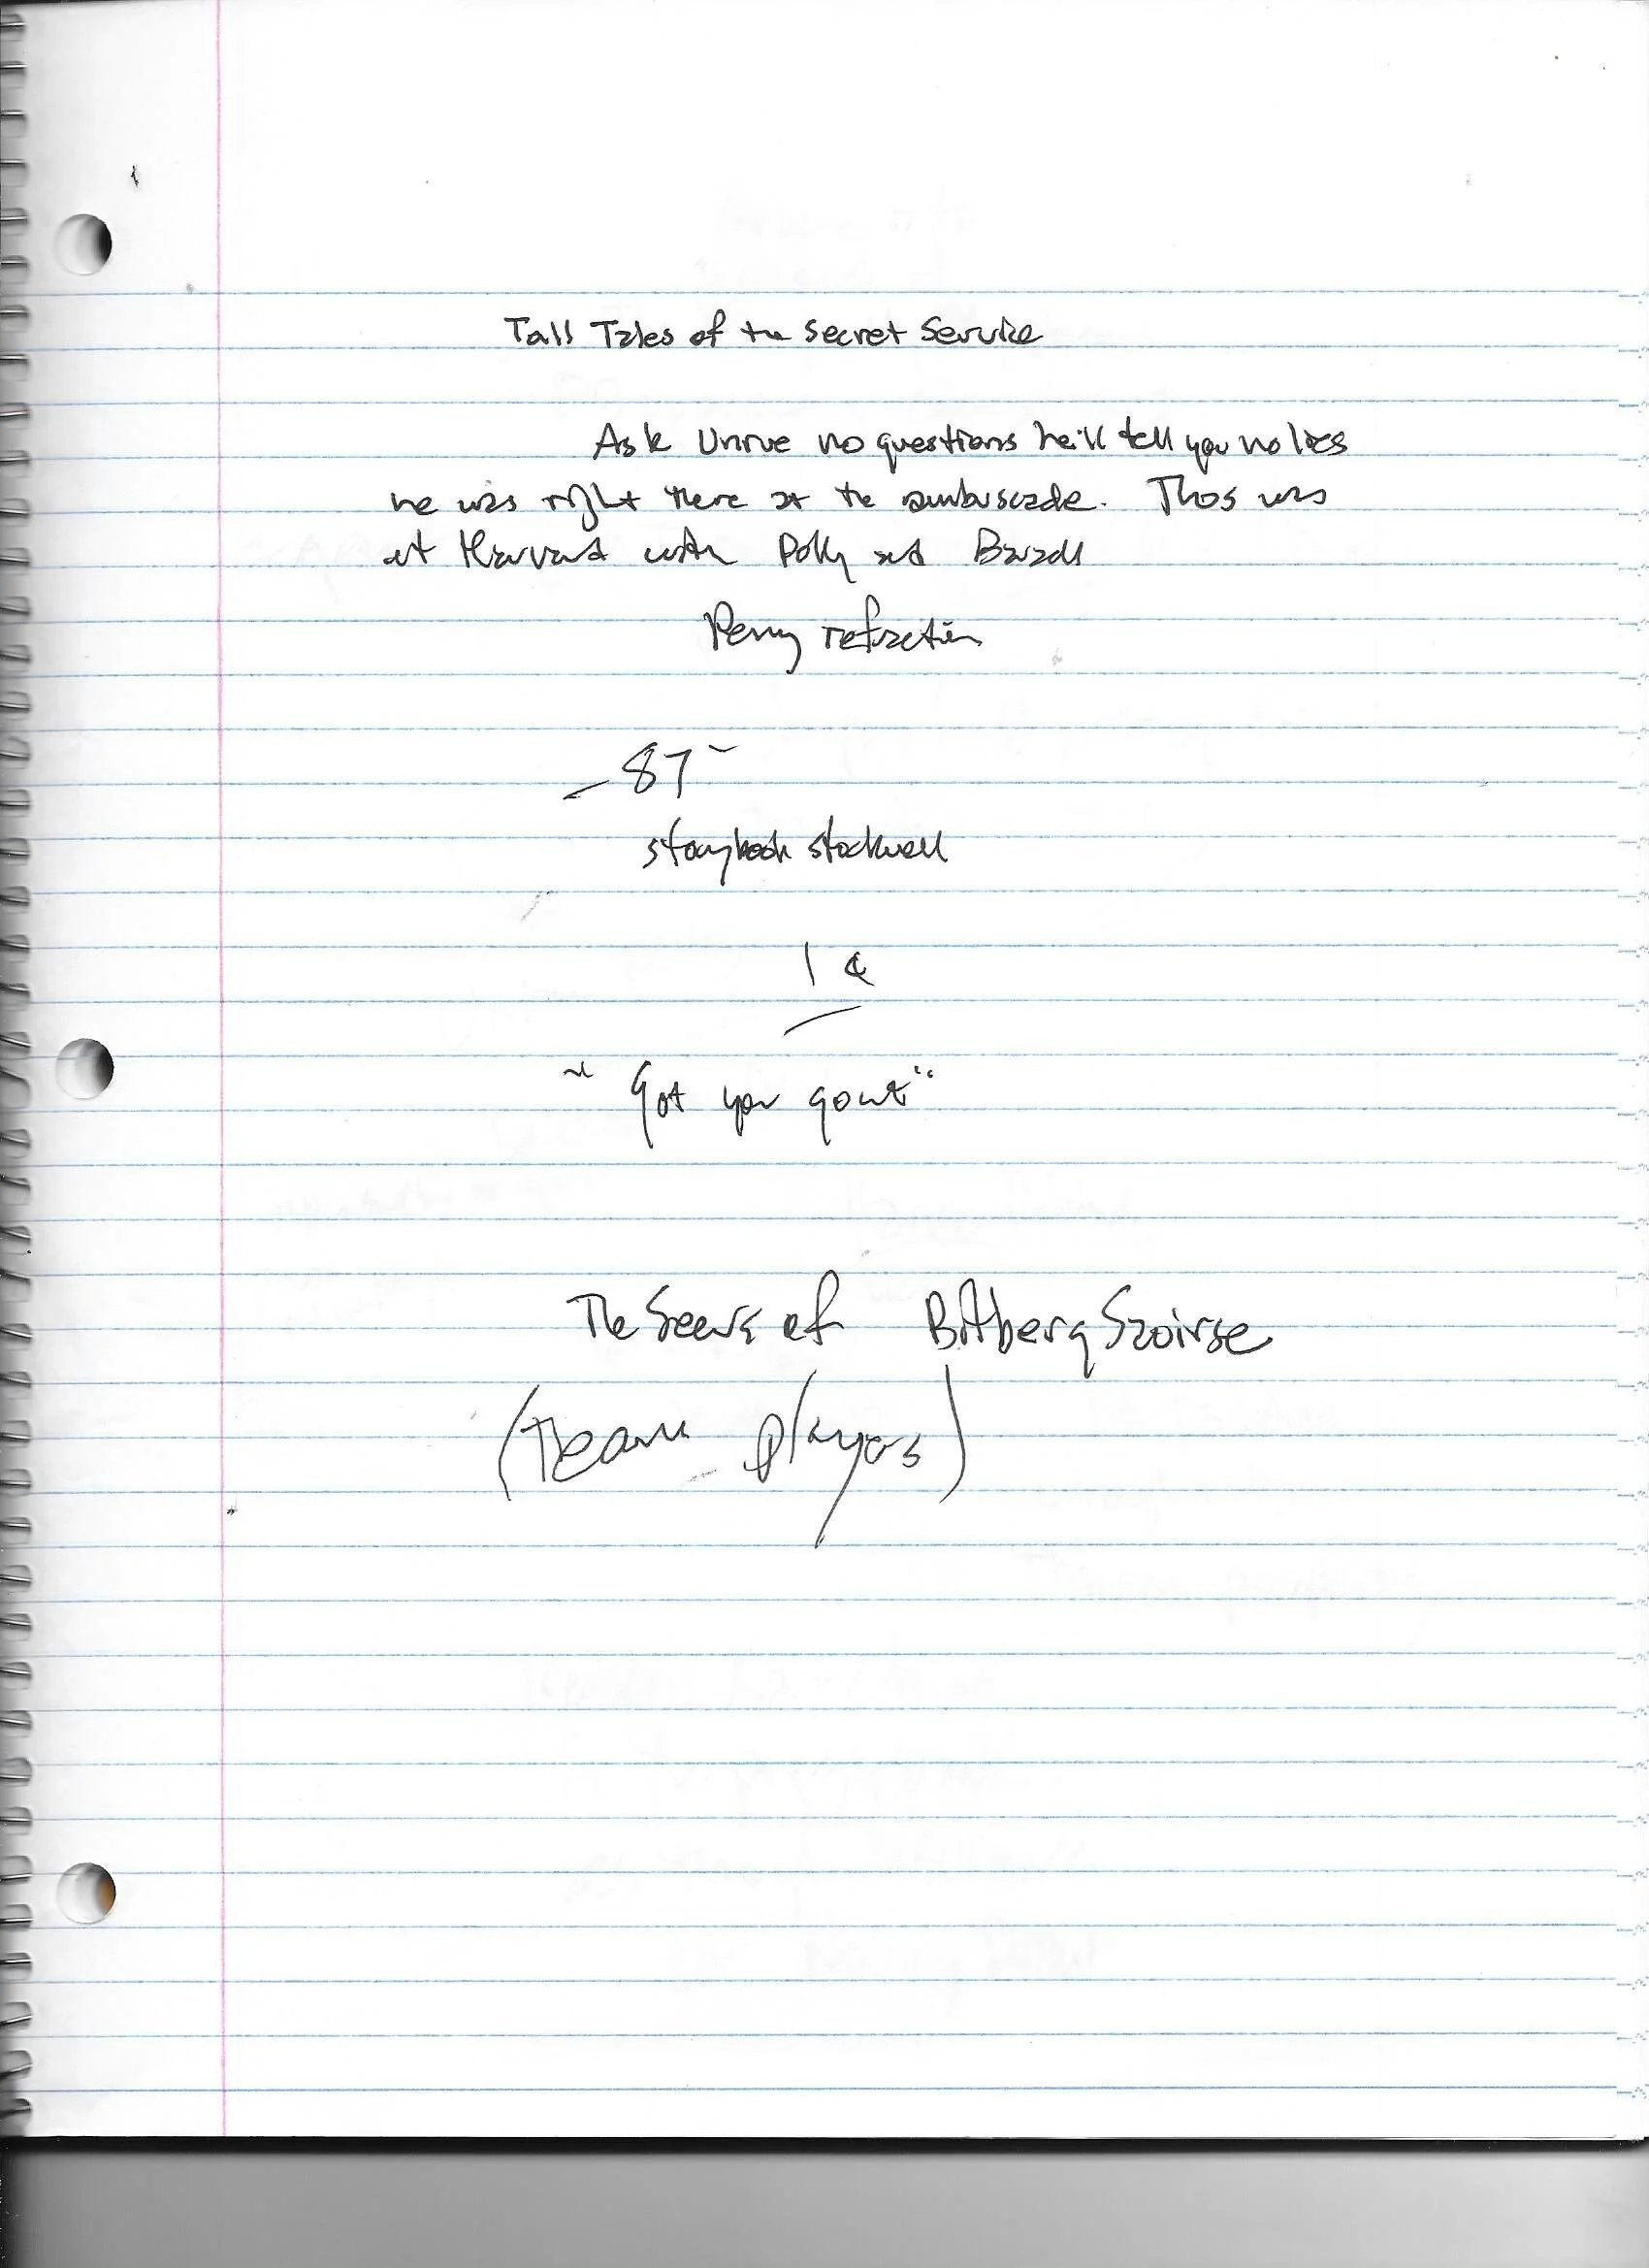 Tall Tales of the Secret Service
Ask Unrue no questions he'll tell you no lies
he was right there at the ambuscade. This was
at Harvard with Polly and
Penny refraction
- 87 -
storybook stockwell
1 ¢
"Got your gout"
The Seers of
(team players)